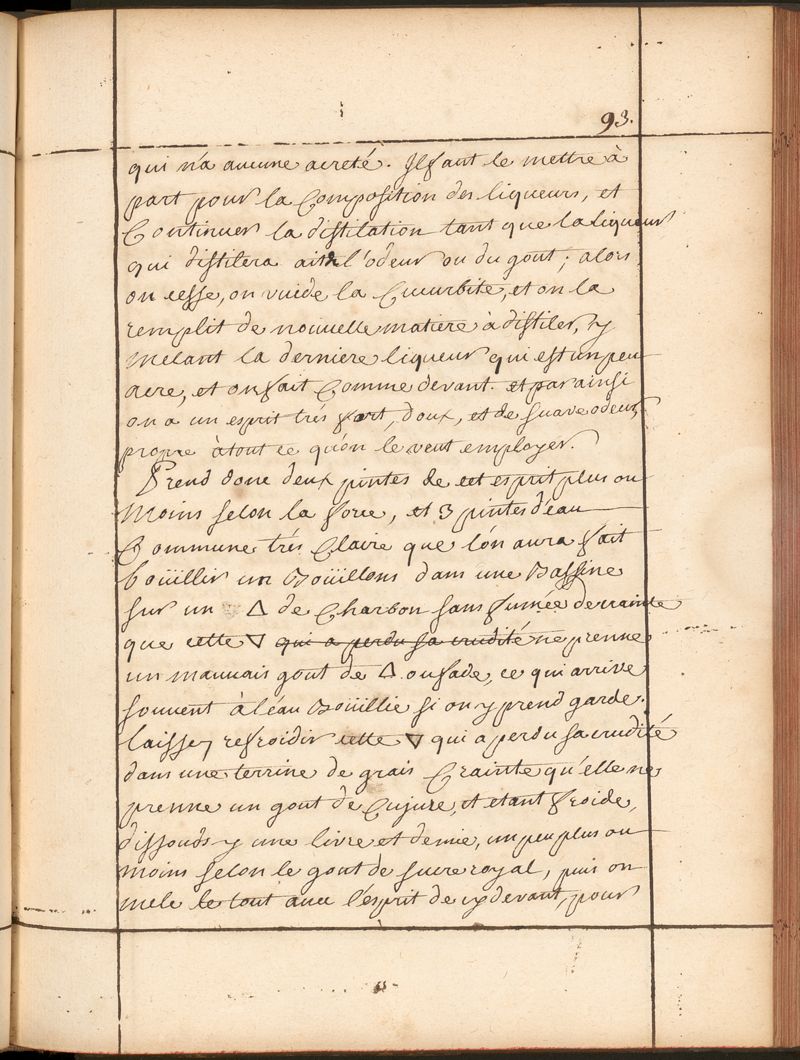 93.
qui n'a aucune acreté. Il faut le mettre à
part pour la Composition des liqueurs, et
Continuer la distilation tant que la liqueur
qui distilera ait de l'odeur ou du gout; alors
on cesse, on vuide la Cucurbite, et on la
remplit de nouvelle matiere à distiler, y
melant la derniere liqueur qui est un peu
acre, et on fait Comme devant. et par ainsi
on a un esprit trés fort, doux, et de suave odeur
propre à tout ce qu'on le veut employer.
Prend donc deux pintes de cet esprit plus ou
moins selon la force, et 3 pintes d'eau
Commune trés Claire que l'on aura fait
boüillir un Boüillons dans une Bassine
sur un △ de Charbon sans fumée de crainte
que cette ▽ qui a perdu sa crudité ne prenne
un mauvais gout de △ ou fade, ce qui arrive
souvent à l'éau Boüillie si on y prend garde.
laissez refroidir cette ▽ qui a perdu sa crudité
dans une terrine de grais Crainte qu'elle ne
prenne un gout de Cujure, et etant froide,
dissouds y une livre et demie, un peu plus ou
moins selon le gout de sucre royal, puis on
mele le tout avec l'esprit de cy devant, pour